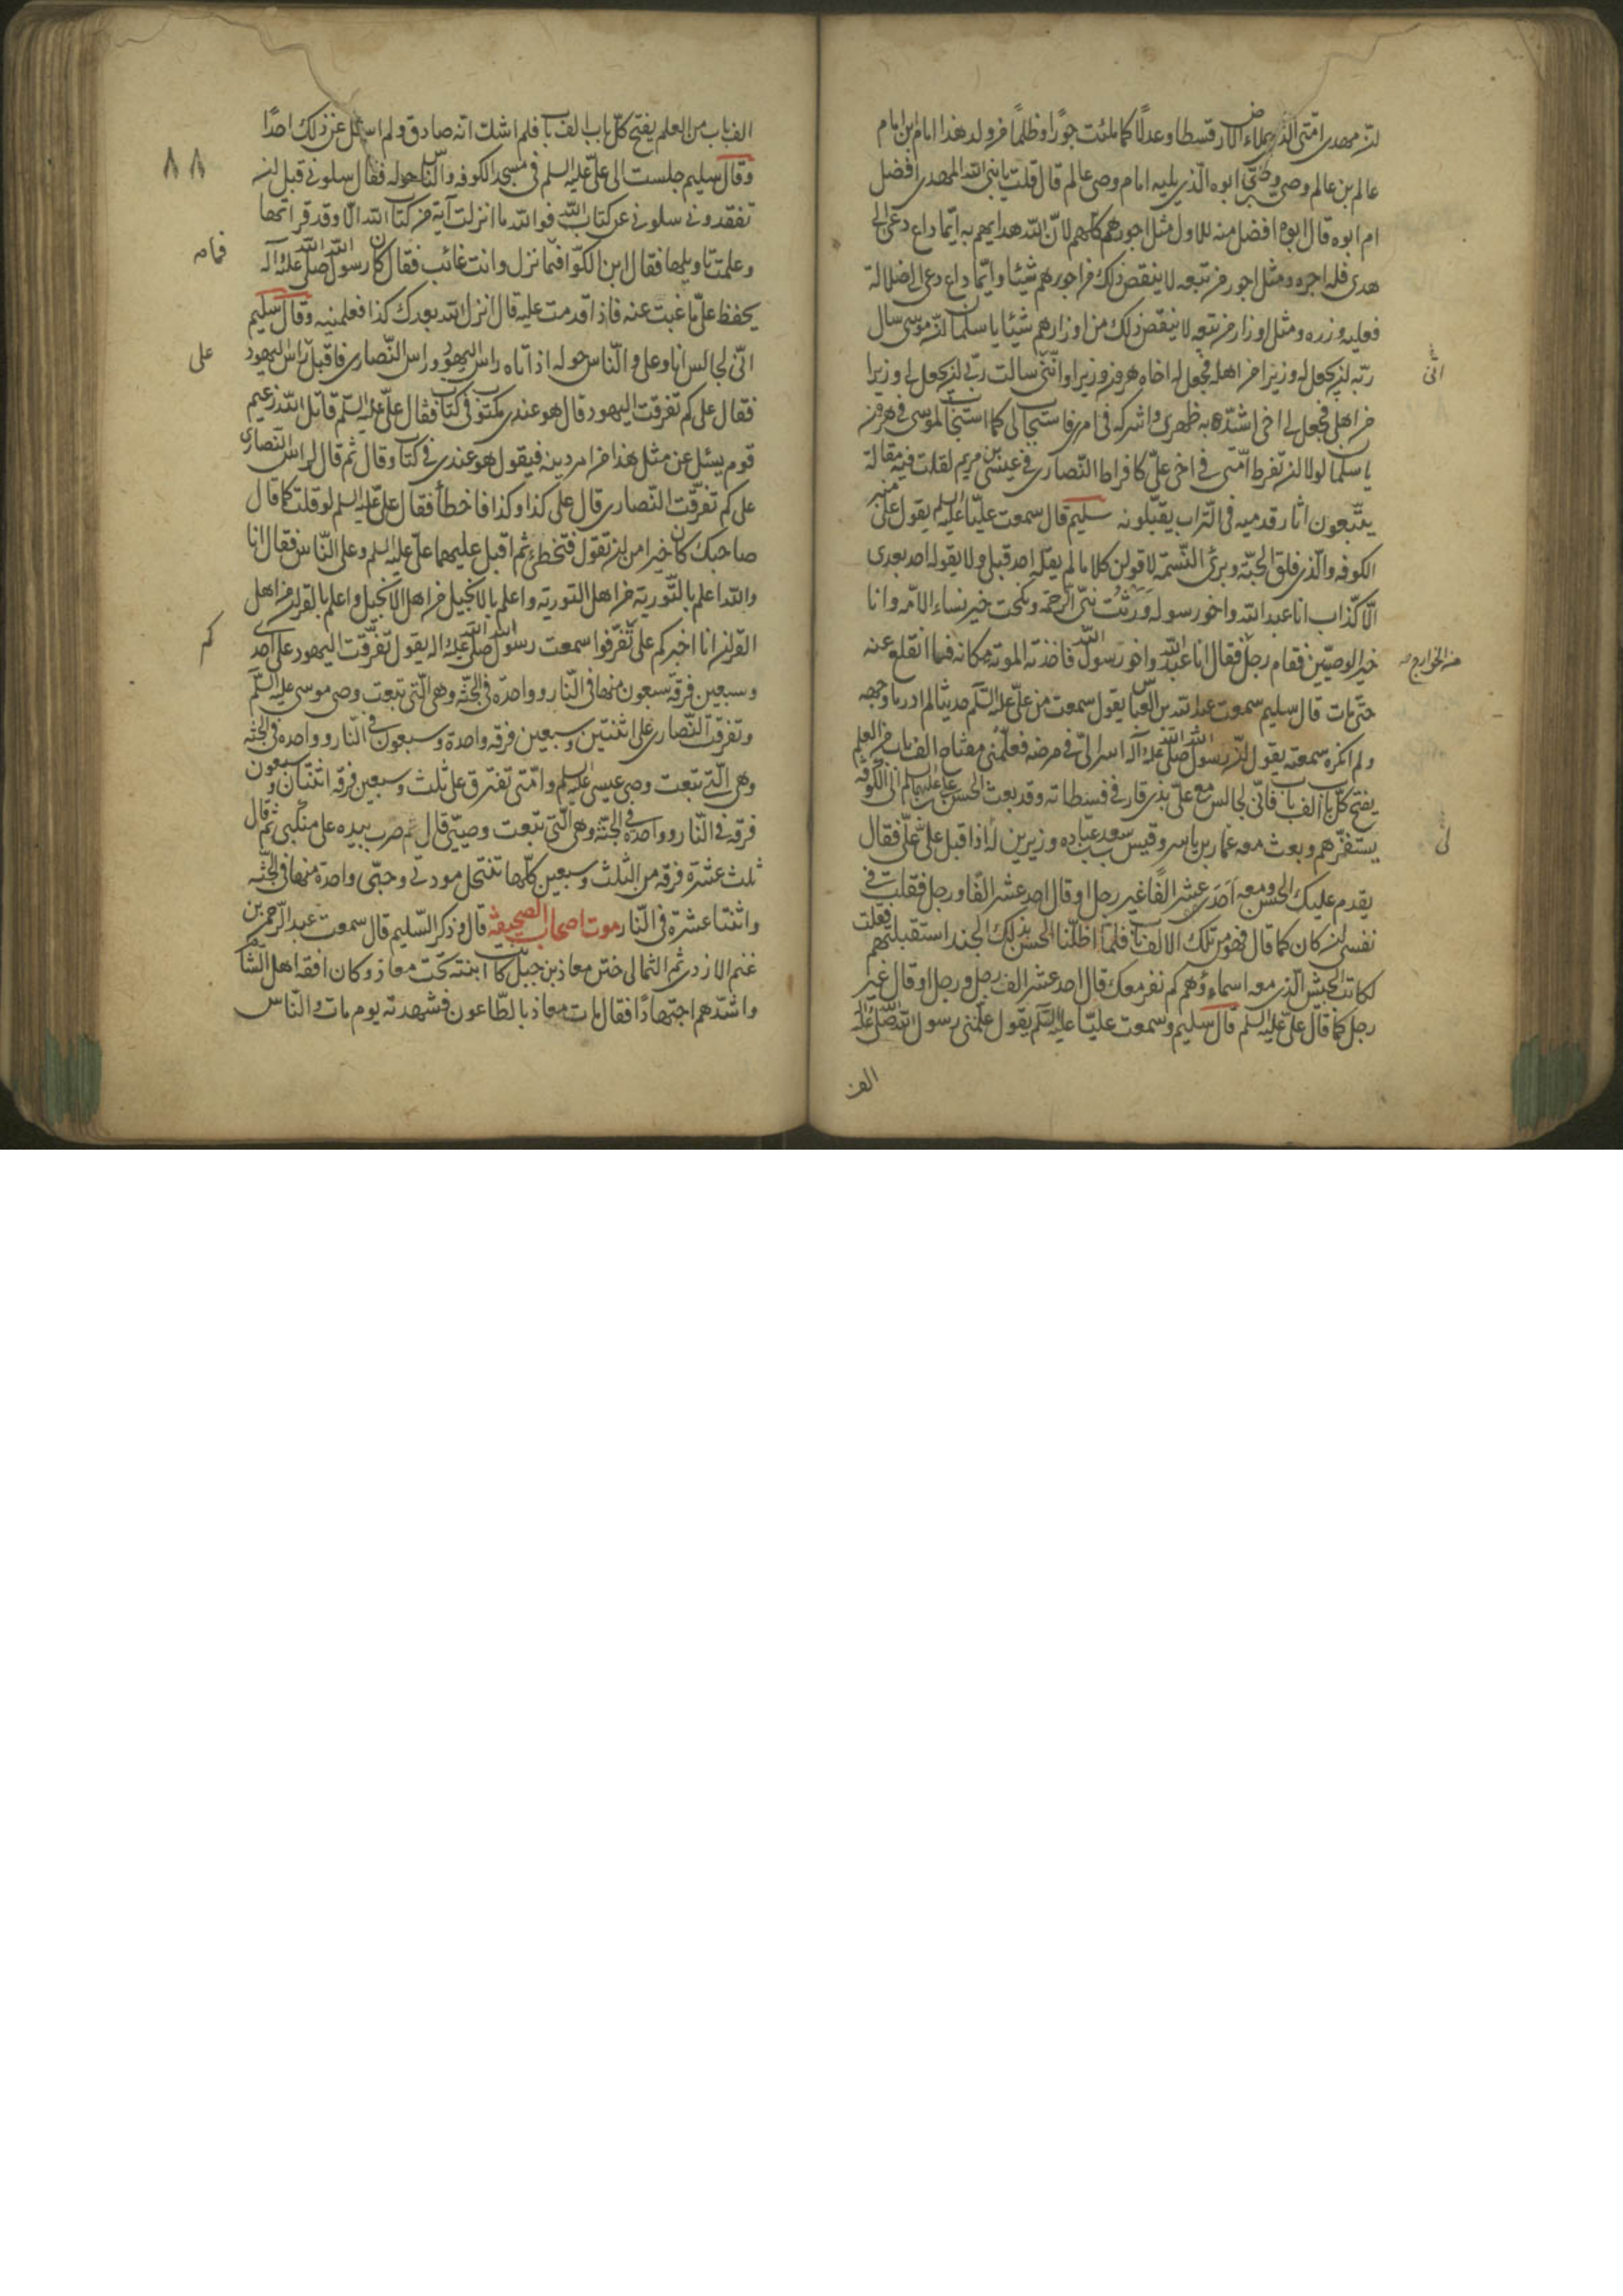 ان مهدى امّتى الذى يملاء الارض قسطا وعدلًا كما ملئت جورًا وظلماً من ولد هذا امام بن امام
عالم بن عالم وصى بن وصى ابوه الّذى يليه امام وصى عالم قال قلت يا نبى الله المهدى افضل
ام ابوه قال ابوه افضل منه للاول مثل اجورهم كلهم لانّ الله هداهم به ايّما داع دعى الى
هدى فله اجره ومثل اجور من تبعه لا ينقص ذلك من اجورهم شيئا وايّما داع دعى الى ضلالة
فعليه وزره ومثل اوزار من تبعه لا ينقص ذلك من اوزارهم شيئا يا سلمان ان موسى سال
ربّه ان يجعل له وزيرا من اهله فجعل له اخاه هرون وزيرا وانّى سالت ربّى ان يجعل لى وزيرا
من اهلى فجعل لى اخى اشدّ به ظهرى واشركه فى امرى فاستجاب لى كما استجاب لموسى فى هرون
يا سلمان لولا ان تفرط امّتى فى اخى علىّ كافراط النّصارى فى عيسى بن مريم لقلت فيه مقالة
يتّبعون اثار قدميه فى التّراب يقبّلونه سليم قال سمعت عليّا عليه السلم يقول على منبر
الكوفه والّذى فلق الحبّة وبرئ النّسمة لاقولن كلاما لم يقله احد قبلى ولا يقوله احد بعدى
الّا كذّاب انا عبد الله واخو رسوله وَرَثْتُ نبىّ الرّحمة ونكحت خير نساء الامّة وانا
خير الوصيّين فقام رجل فقال انا عبد الله واخو رسول الله فاخذته الموتة مكانه فما انقلع عنه
حتّى مات قال سليم سمعت عبد الله بن العباس يقول سمعت من علىّ عليه السّلم حديثا لم ادر ما وجهه
ولم انكره سمعته يقول ان رسول الله صلى الله عليه وآله اسر الىّ فى مرضه فعلّمنى مفتاح الف باب من العلم
يفتح كلّ باب الف باب فانّى لجالس مع علىّ بذى قار فى فسطاته وقد بعث الحسن بن على عليهما السلم الى الكوفة
يستفزّهم وبعث معه عمار بن ياسر وقيس بن سعد بن عباده وزيرين له اذا اقبل علىّ علىّ فقال
يقدم عليك الحسن ومعه اَحَدَ عشر الفًا غير رجل او قال احد عشر الفًا ورجل فقلت فى
نفسى ان كان كما قال فهو من تلك الالف باب فلمّا اظلّنا الحسن بذلك الجند استقبلتهم فقلت
لكاتب الجيش الّذى معه اسماءهم كم نفر معك قال احد عشر الف رجل ورجل او قال غير
رجل كما قال علىّ عليه السلم قال سليم وسمعت عليّا عليه السّلم يقول علّمنى رسول الله صلى الله عليه وآله
الف
انى
من الخوارج صه
لى
الف باب من العلم يفتح كلّ باب الف باب فلم اشك انه صادق ولم اسئل عن ذلك احدًا
وقال سليم جلست الى علىّ عليه السلم فى مسجد الكوفه والناس حوله فقال سلونى قبل ان
تفقدونى سلونى عن كتاب الله فو الله ما انزلت آية من كتاب الله الّا وقد قراتها
وعلمت تاويلها فقال ابن الكوّا فما نزل وانت غائب فقال كان رسول الله صلى الله عليه وآله
يحفظ علىّ ما غبت عنه فاذا قدمت عليه قال انزل الله بعدك كذا فعلمنيه وقال سليم
انّى لجالس انا وعلى والنّاس حوله اذ اتاه راس اليهود وراس النّصارى فاقبل راس اليهود
فقال على كم تفرقت اليهود قال هو عندى مكتوب فى كتاب فقال علىّ عليه السّلم قاتل الله زعيم
قوم يسئل عن مثل هذا من امر دينه فيقول هو عندى فى كتاب وقال ثم قال لراس النّصارى
على كم تفرّقت النّصارى قال على كذا وكذا فاخطأ فقال علىّ عليه السلم لو قلت كما قال
صاحبك كان خيرا من ان تقول فتخطئ ثم اقبل عليهما علىّ عليه السلم وعلى النّاس فقال انا
والله اعلم بالتّورية من اهل التورية واعلم بالانجيل من اهل الانجيل واعلم بالقران من اهل
القران انا اخبركم على تفرّقوا سمعت رسول الله صلى الله عليه واله يقول تفرّقت اليهود على احدى
وسبعين فرقة سبعون منها فى النّار وواحدة فى الجنّة وهى الّتى تبعت وصى موسى عليه السّلم
وتفرقت النّصارى على اثنتين وسبعين فرقه واحدة وسبعون فى النّار وواحده فى الجنّه
وهى الّتى تبعت وصى عيسى عليه السلم وامّتى تفترق على ثلث وسبعين فرقه اثنتان وسبعون
فرقه فى النّار وواحدة فى الجنّة وهى الّتى تبعت وصيّى قال ثم ضرب بيده على منكبى ثم قال
ثلث عشرة فرقه من الثلث وسبعين كلّها تنتحل مودتى وحبّى واحدة منها فى الجنّه
واثنتا عشرة فى النّار موت اصحاب الصحيفة قال وذكر السّليم قال سمعت عبد الرّحمن بن
غنم الازدى ثم الثمالى ختن معاذ بن جبل كانت ابنته تحت معاذ وكان افقه اهل الشام
واشدّهم اجتهادًا فقال مات معاذ بالطّاعون فشهدته يوم مات والنّاس
٨٨
فمامه
على
كم